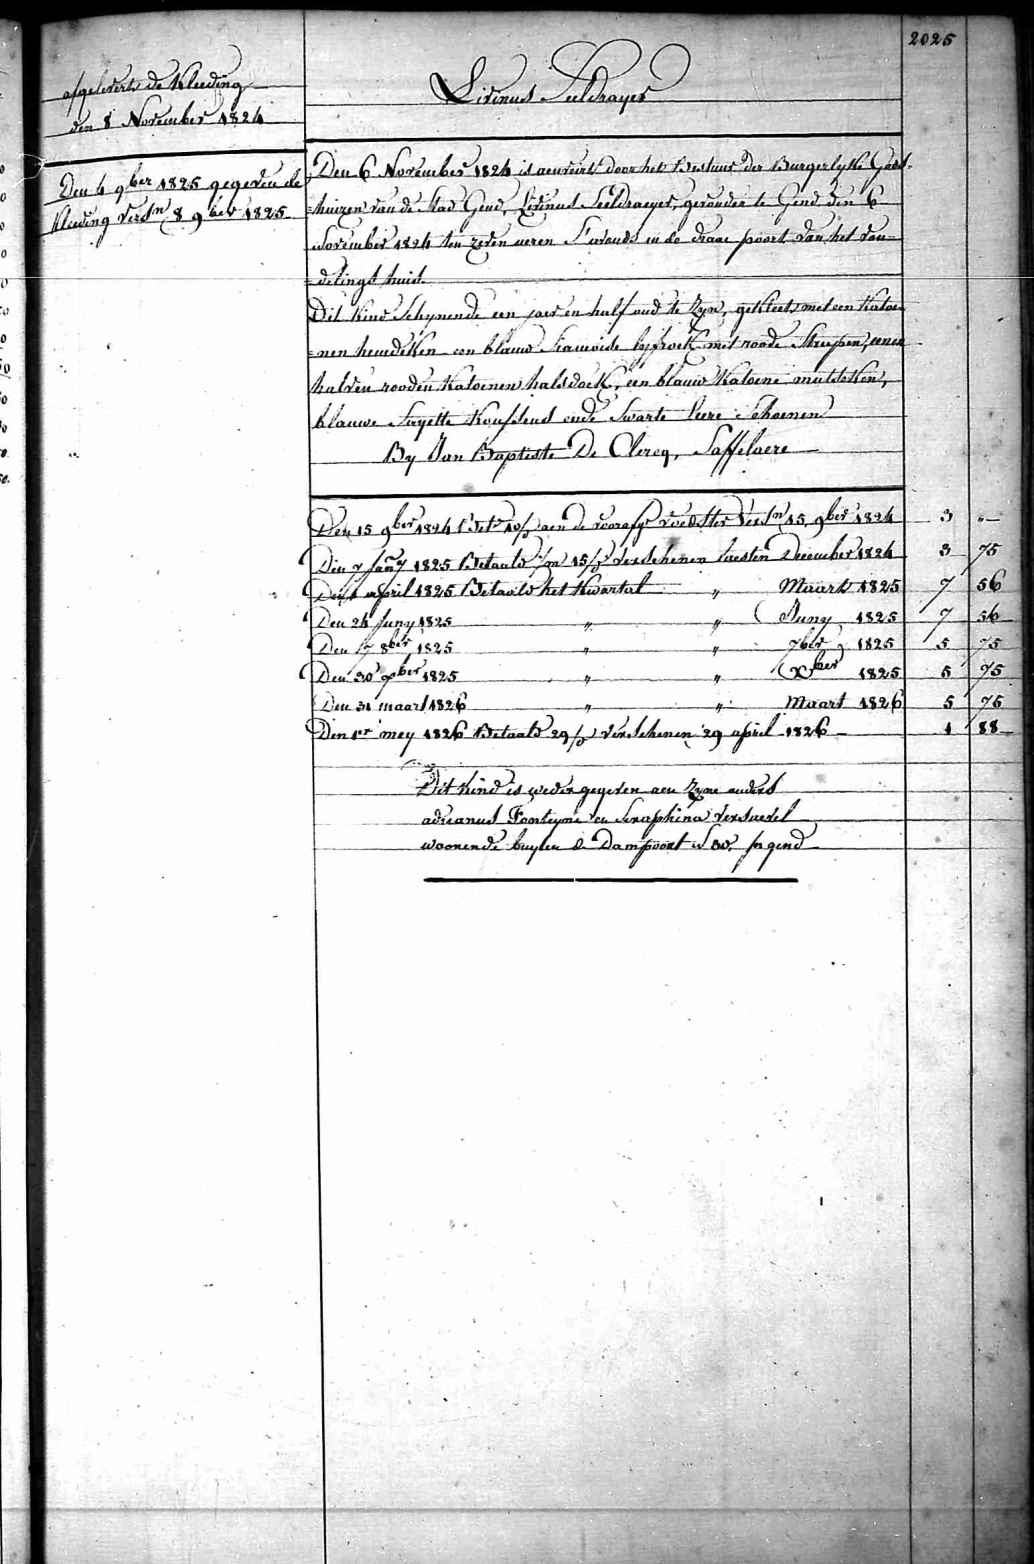 2025
afgelevert de Kleeding
den 8 November 1824
Den 4 9ber 1825 gegeven de
kleeding versn 8 9ber 1825
Livinus Seeldrayer
Den 6 November 1824 is aenveirt door het Bestuur der Burgerlyke Gods-
=huizen van de stad Gend, Livinus Seeldraeyer, gevonden te Gend den 6
November 1824 ten zeven ueren S'avonds in de draae poort van het von-
=delings huis.
Dit kind Schynende een jaer en half oud te zyn, gekleet met een Katoe-
=nen hemdeken een blauw Siamoise lyfrock met roode Streepen, eenen
halven rooden Katoenen halsdoek, een blauw Katoene mutsken,
blauwe Sayette Kousens ende Swarte leere Schoenen
By Jan Baptiste De Clercq, Saffelaere
Den 15 9ber 1824 Bet 10/ aen de voorafge voedster versn 15 9ber 1824 3 "
Den 7 Jany 1825 Betaald 15/ verschenen laesten December 1824 3 75
Den april 1825 Betaald het Kwartal " Maart 1825 7 56
Den 24 Juny 1825 " " Juny 1825 7 56
Den 17 8ber 1825 " " 7ber 1825 5 75
Den 30 xber 1825 " " Xber 1825 5 75
Den 31 maart 1826 " " Maart 1826 5 75
Den 1er mey 1826 Betaald 29/ verschenen 29 april 1826 1 88
Dit kind is weder gegeven aen zyne ouders
adrianus Fonteyne en Seraphina
woonende buyten de Dampoort N 30. in gend